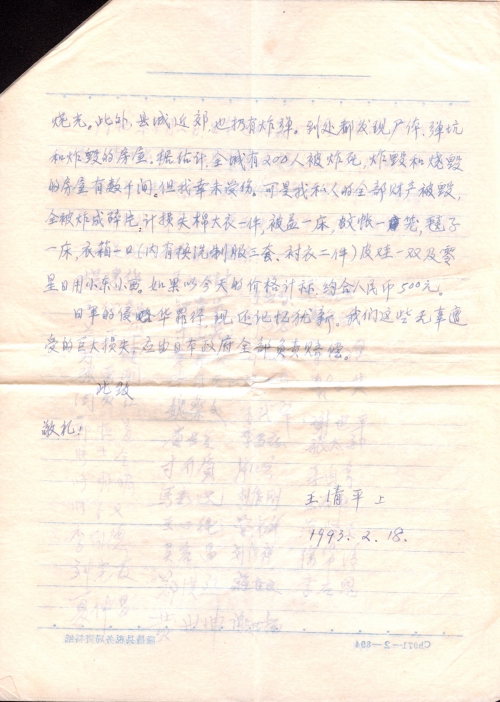 烧光。此外,县城近郊,也扔有炸弹。到处都发现尸体、弹坑
和炸毁的房屋。据估计,全城有200人被炸死,炸毁和烧毁
的房屋有数千间。但我幸未受伤。可是我私人的全部财产被毁,
全被炸成碎片,计损失棉大衣一件,被盖一床,蚊帐一笼,毯子
一床,衣箱一口(内有换洗制服三套、衬衣二件)皮鞋一双及零
星日用小东小西,如果以今天的价格计标,约合人民币500元。
日军的侵略华罪行,现还记忆犹新。我们这些无辜遭
受的巨大损失,应由日本政府全部负责赔偿。
此致
敬礼!
王清平上
1993.2.18.